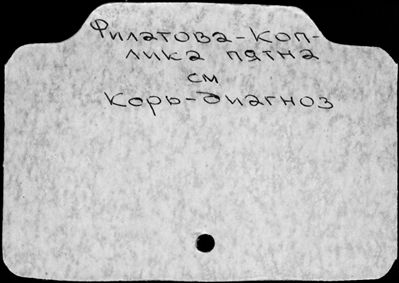 Филатова-Коп-
лика пятна
см
Корь-диагноз